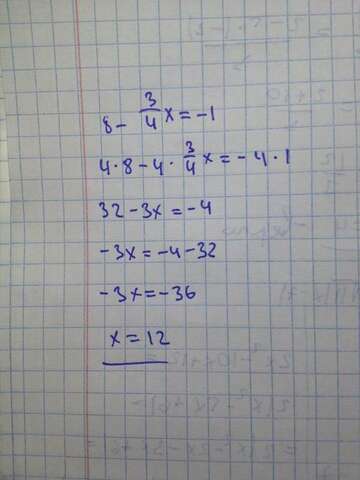 8 - 3/4 x = -1
4·8 - 4· 3/4 x = -4·1
32 - 3x = -4
-3x = -4 - 32
-3x = -36
x = 12